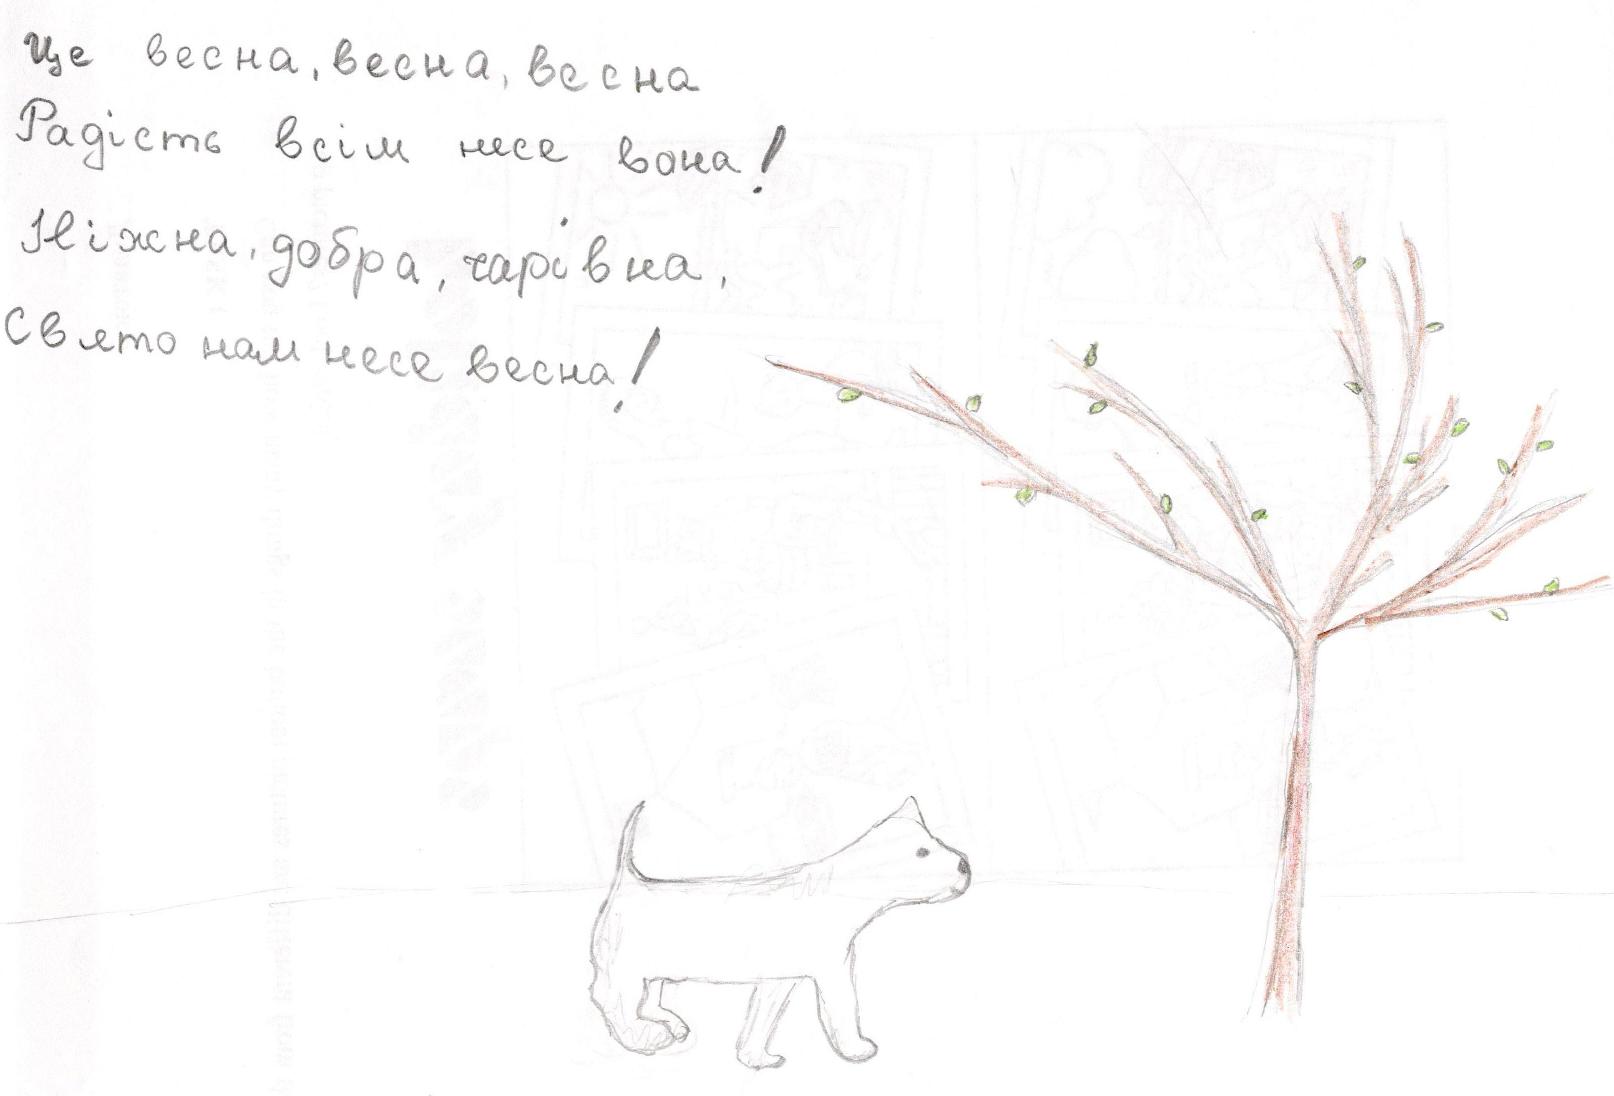 Це весна, весна, весна
Радість всім несе вона!
Ніжна, добра, чарівна,
Свято нам несе весна!